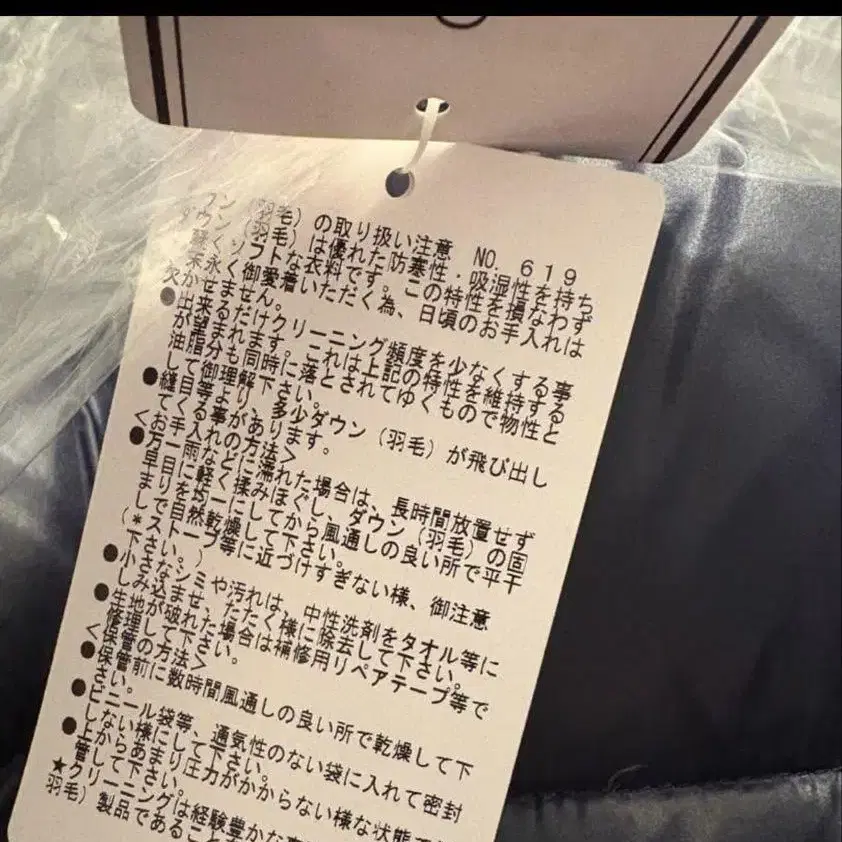 ン(羽毛)の取り扱い注意 NO. 619
ウン(羽毛)は優れた防寒性・吸湿性を持ち
軽くソフトな衣料です。この特性を損なわず
末永く御愛着いただく為、日頃のお手入れは
欠かせません。
●出来るだけクリーニング頻度を少なくする事
が望まれます。これは上記の特性を維持する
油脂分も同時に落とされてゆくもので物性と
して御理解下さい。
●縫目等より、多少ダウン(羽毛)が飛び出し
てくる事があります。
<お手入れの方法>
●万一雨などに濡れた場合は、長時間放置せず
早目に軽く揉みほぐし、ダウン(羽毛)の固
まりを均一にしてから風通しの良い所で平干
し自然乾燥して下さい。
(*ストーブ等に近づけすぎない様、御注意
下さい。)
●小さなシミや汚れは、中性洗剤をタオル等に
しみ込ませ、たたく様に除去して下さい。
●生地が破れた場合は補修用リペアテープ等で
修理して下さい。
<保管の方法>
●保管前に数時間風通しの良い所で乾燥して下
さい。
●ビニール袋等、通気性のない袋に入れて密封
しない様にして下さい。
●上からあまり圧力がかからない様な状態で
管して下さい。
★クリーニングは経験豊かな
羽毛)製品であること